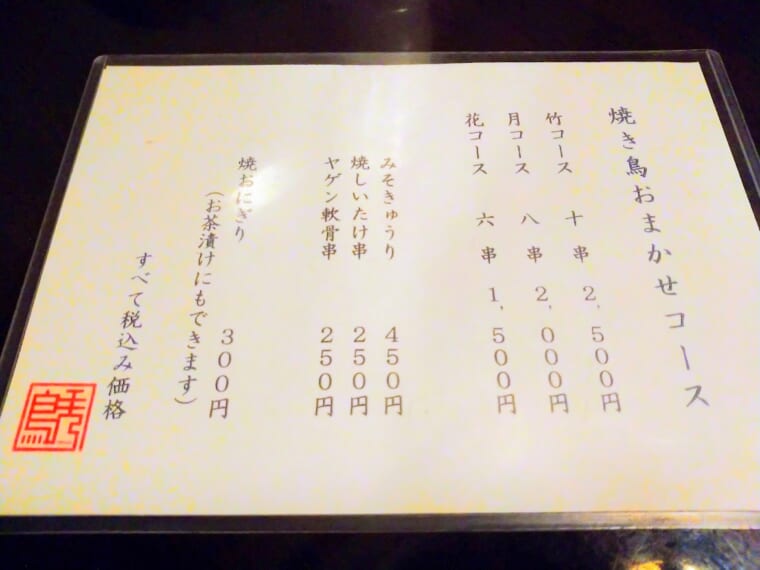 焼き鳥おまかせコース
竹コース 十串 2,500円
月コース 八串 2,000円
花コース 六串 1,500円
みそきゅうり 450円
焼しいたけ串 250円
ヤゲン軟骨串 250円
焼おにぎり 300円
(お茶漬けにもできます)
すべて税込み価格